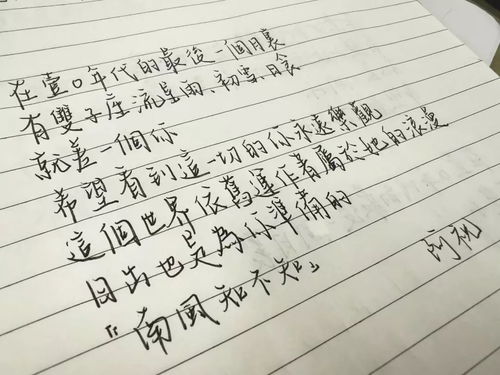 在壹0年代的最後一個月裏
有雙子座流星雨、初雪、日食
就差一個你
希望看到這一切的你永遠樂觀
這個世界依舊運作着屬於她的浪漫
日出也是為你準備的
『南風知不知』